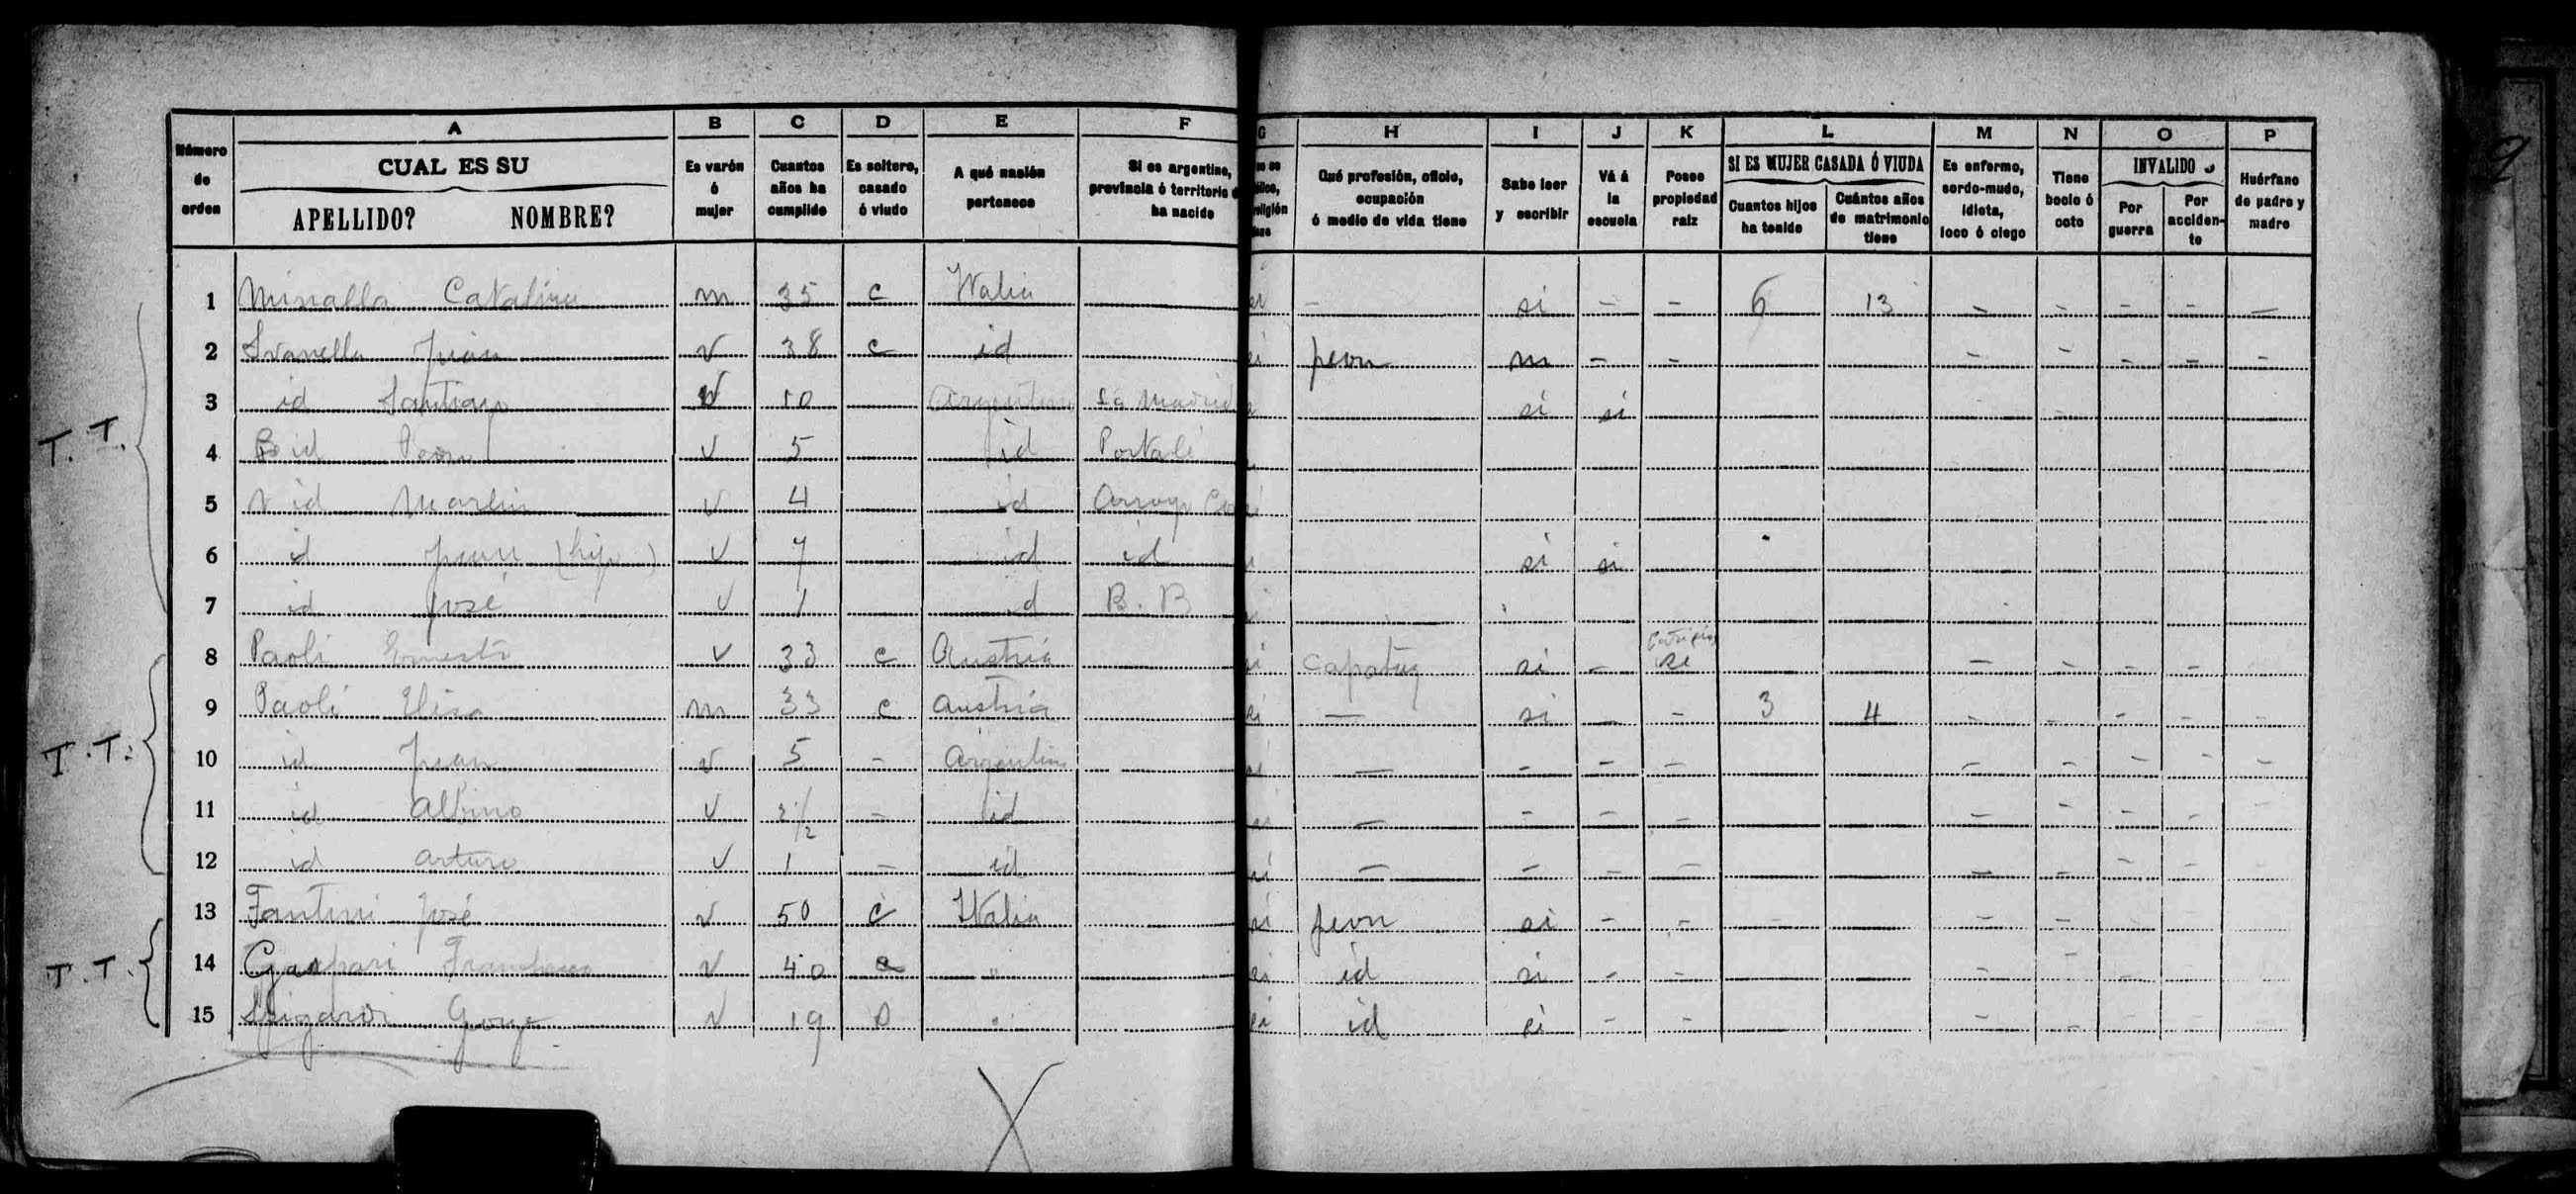 A B C D E F G H I J K L M N O P
Número de orden
CUAL ES SU
APELLIDO? NOMBRE?
Es varón ó mujer
Cuantos años ha cumplido
Es soltero, casado ó viudo
A qué nasión pertenece
Si es argentino,
provincia ó territorio
ha nacido
Qué profesión, oficio, ocupación ó medio de vida tiene
Sabe leer y escribir
Vá á la escuela
Posee propiedad raiz
SI ES MUJER CASADA Ó VIUDA
Cuantos hijos ha tenido
Cuántos años de matrimonio tiene
Es enfermo, sordo-mudo, idiota, loco ó ciego
Tiene bocio ó coto
INVALIDO
Por guerra
Por acciden-te
Huérfano de padre y madre
1 Minalla Catalina m 35 c Italia — si — — 6 13 — — — — —
2 Juan v 38 c id peon — — — — — — —
3 id Santiago v 10 Argentina si si
4 id v 5 id
5 id Martin v 4 id Arroyo
6 id Juan (hijo) v 7 id id si si
7 id José v 1 id B. B
8 Paoli Ernesto v 33 c Austria capataz si — si — — — —
9 Paoli Elisa m 33 c Austria — si — — 3 4 — — — — —
10 id Juan v 5 — Argentina — — — — — — — — —
11 id Albino v 2 1/2 — id — — — — — — — — —
12 id Arturo v 1 — id — — — — — — — — —
13 Fantini José v 50 c Italia peon si — — — —
14 Gaspari v 40 c " id si — — — — —
15 v 19 " id si — — — —
T. T.
T. T.
T. T.